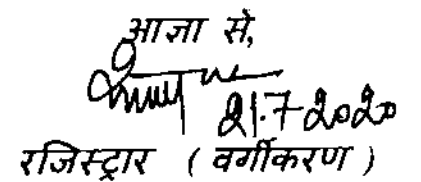 आज्ञा से,
21.7-2020
रजिस्ट्रार ( वर्गीकरण )